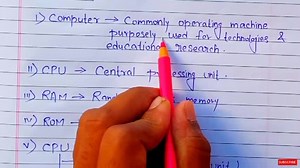 I) Computer → Commonly operating machine
purposely used for technologies &
educational research.
II) CPU → Central processing unit.
III) RAM → Rand memory
IV) ROM →
V) CPU
unit)
SUBSCRIBE